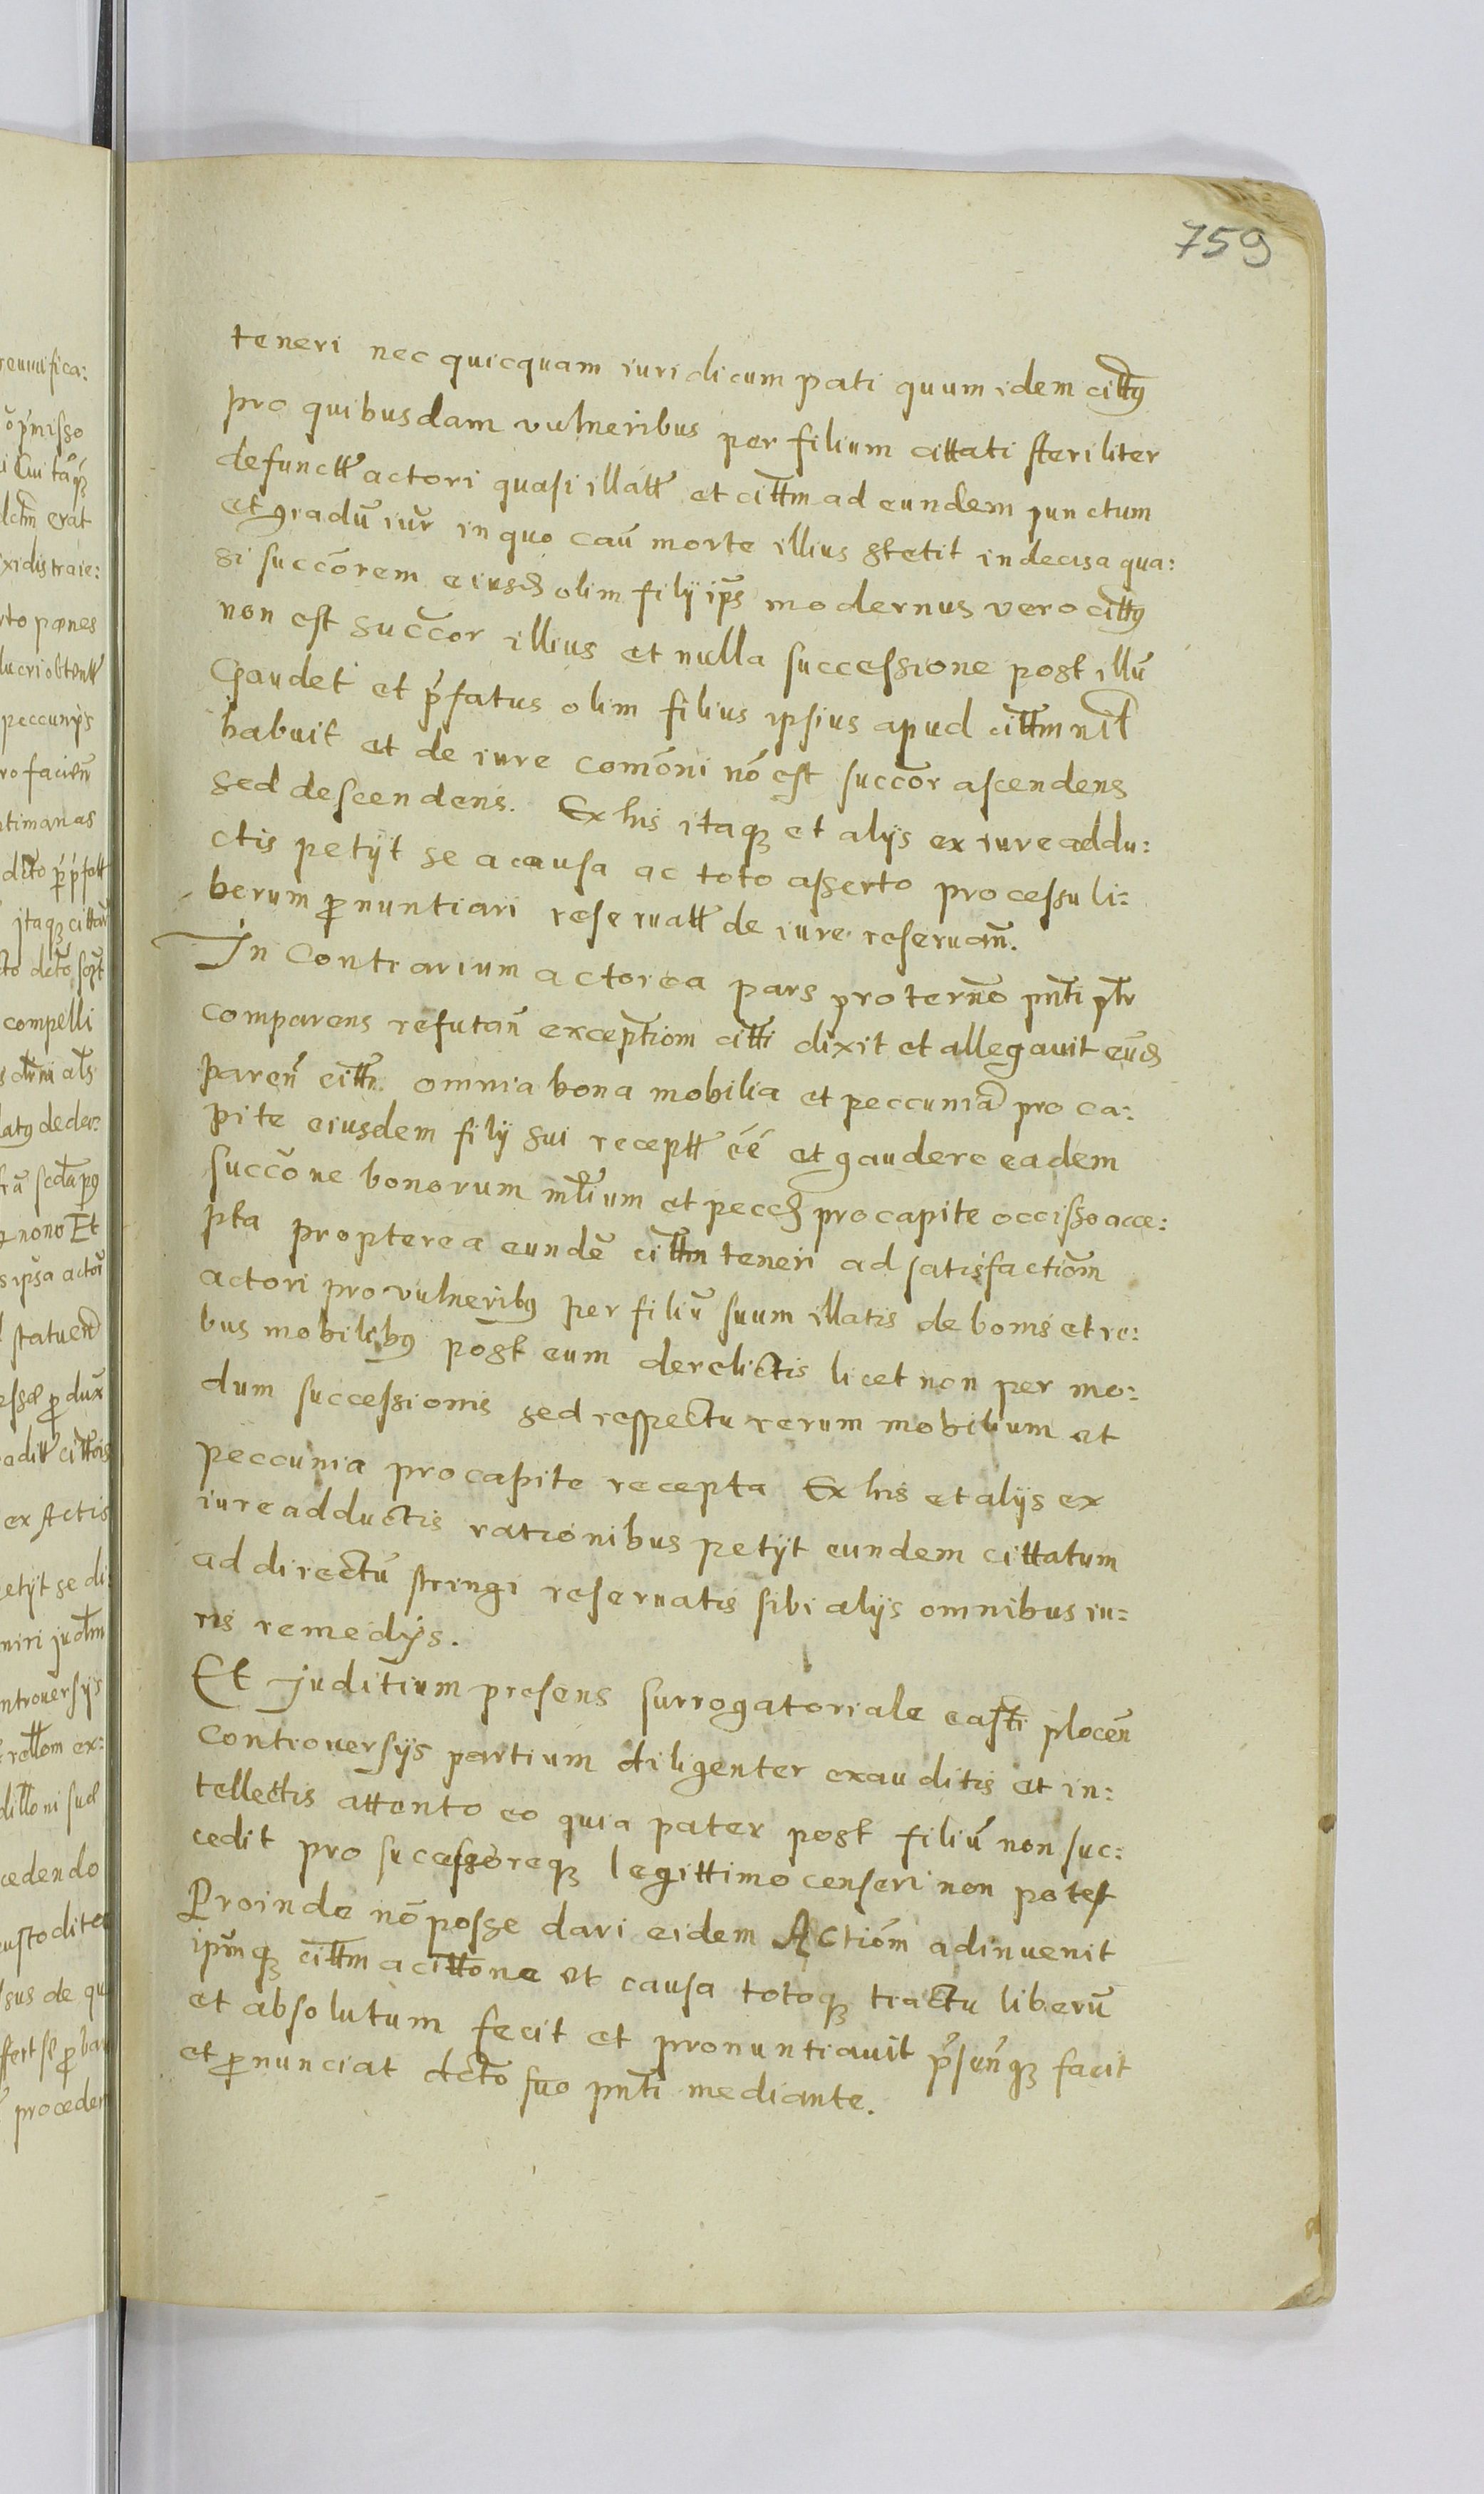 759
teneri nec quicquam iuridicum pati quum idem cittus
pro quibusdam vulneribus per filium cittati steriliter
defuncttum actori quasi illatt et cittm ad eundem punctum
et gradū iur in quo cauā morte illius stetit indecisa qua:
si succōrem eiusd olim filij ip̄s modernus vero cittus
non est succōr illius et nulla successione post illū
Gaudet et p̄fatus olim filius ipsius apud cittm nil
habuit et de iure comōni nō est succōr ascendens
sed descendens. Ex his itaq et alijs ex iure addu:
ctis petijt se a causa ac toto asserto processu li:
berum pnuntiari reseruatt de iure reseruan̄.
In Contrarium actorea pars pro termēo pn̄ti ptr
comparens refutan̄ exceptiom citti dixit et allegauit eūd
paren̄ cittm. omnia bona mobilia et peccunia pro ca:
pite eiusdem filij sui receptt ēē et gaudere eadem
succōne bonorum mb̄lium et pecc pro capite occisso acce:
pta propterea eundē cittm teneri ad satisfactiōm
actori pro vulneribus per filiū suum illatis de bonis et re:
bus mobilibus post eum derelictis licet non per mo:
dum successionis sed respectu rerum mobilium et
peccunia pro capite recepta Ex his et alijs ex
iure adductis rationibus petijt eundem cittatum
ad directū stringi reseruatis sibi alijs omnibus iu:
ris remedijs.
Et Juditium presens surrogatoriale casti plocen̄
Controuersijs partium diligenter exauditis et in:
tellectis attento eo quia pater post filiū non suc:
cedit pro sucessoreq legittimo censeri non potest
Proinde nō posse dari eidem Actiōm adinuenit
ipm̄q cittm a cittōne et causa totoq tractu liberū
et absolutum fecit et pronuntiauit p̄sen̄q facit
et pnunciat dcto suo pn̄ti mediante.